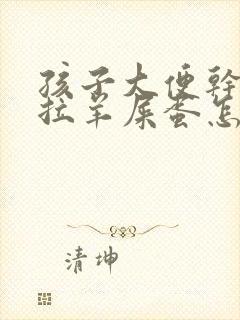 孩子大便幹
拉羊屎蛋怎
清坤